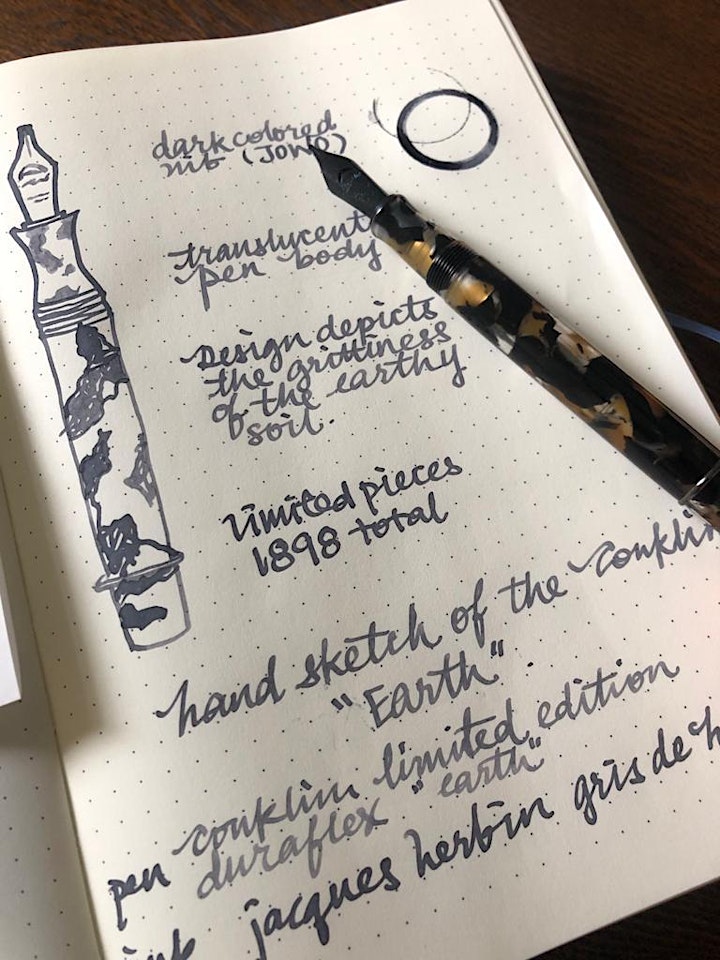 dark colored
nib (JOWO)
translucent
pen body
Design depicts
the grittiness
of the earthy
soil.
Limited pieces
1898 total
hand sketch of the conklin
"Earth".
pen conklin limited edition
duraflex "earth"
ink jacques herbin gris de h